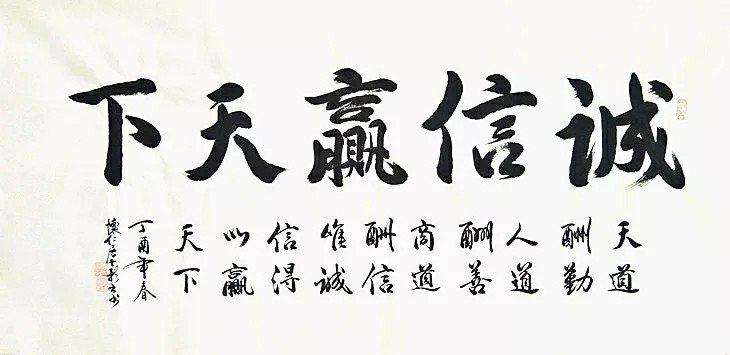 誠信贏天下
天道
酬勤
人道
酬善
商道
酬信
唯誠
信得
以贏
天下
丁酉年春